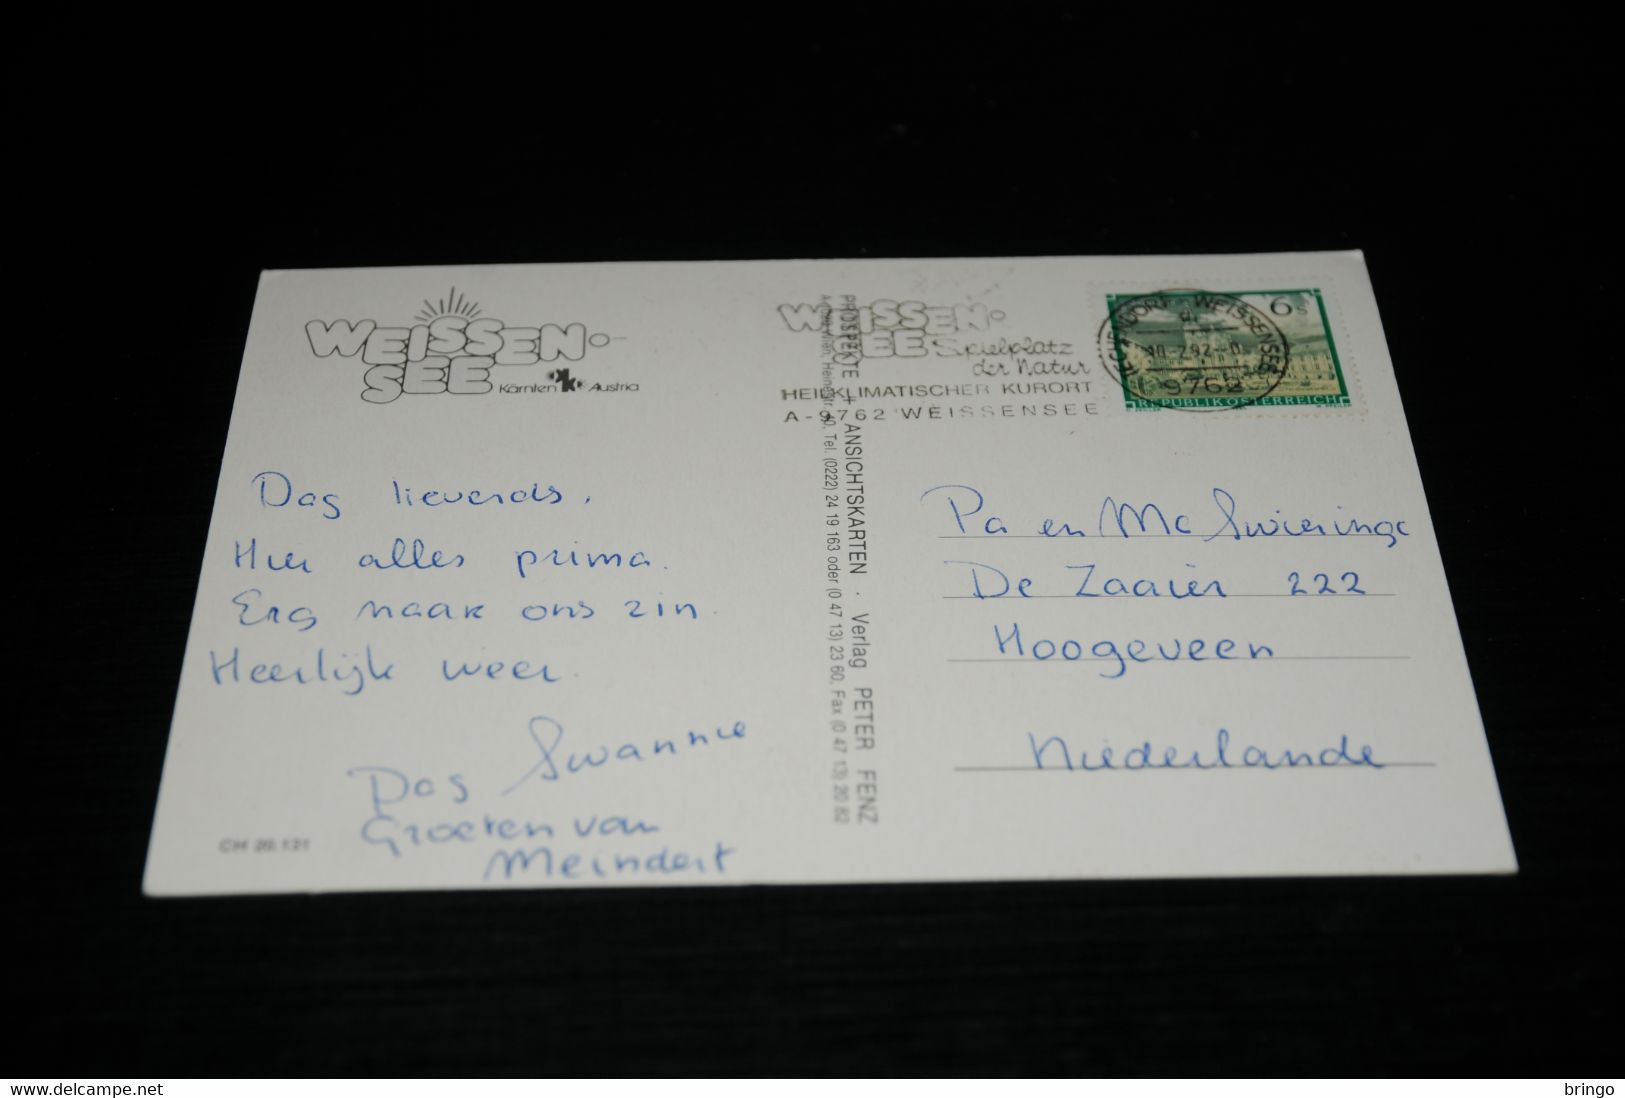 WEISSEN-
SEE Kärnten Austria
Dag lieverds,
Hier alles prima.
Erg naar ons zin.
Heerlijk weer.
Swannie
Dag
Groeten van
Meindert
CH 20.131
PROSPEKTE + ANSICHTSKARTEN · Verlag PETER FENZ
Wien, Heinestr. 40, Tel. (0222) 24 19 163 oder (0 47 13) 23 60, Fax (0 47 13) 20 82
WEISSEN-
SEE Spielplatz
der Natur
HEILKLIMATISCHER KURORT
A-9762 WEISSENSEE
WEISSENSEE
9762
6 S
REPUBLIK ÖSTERREICH
Pa en Ma Swieringa
De Zaaier 222
Hoogeveen
Niederlande
www.delcampe.net
bringo